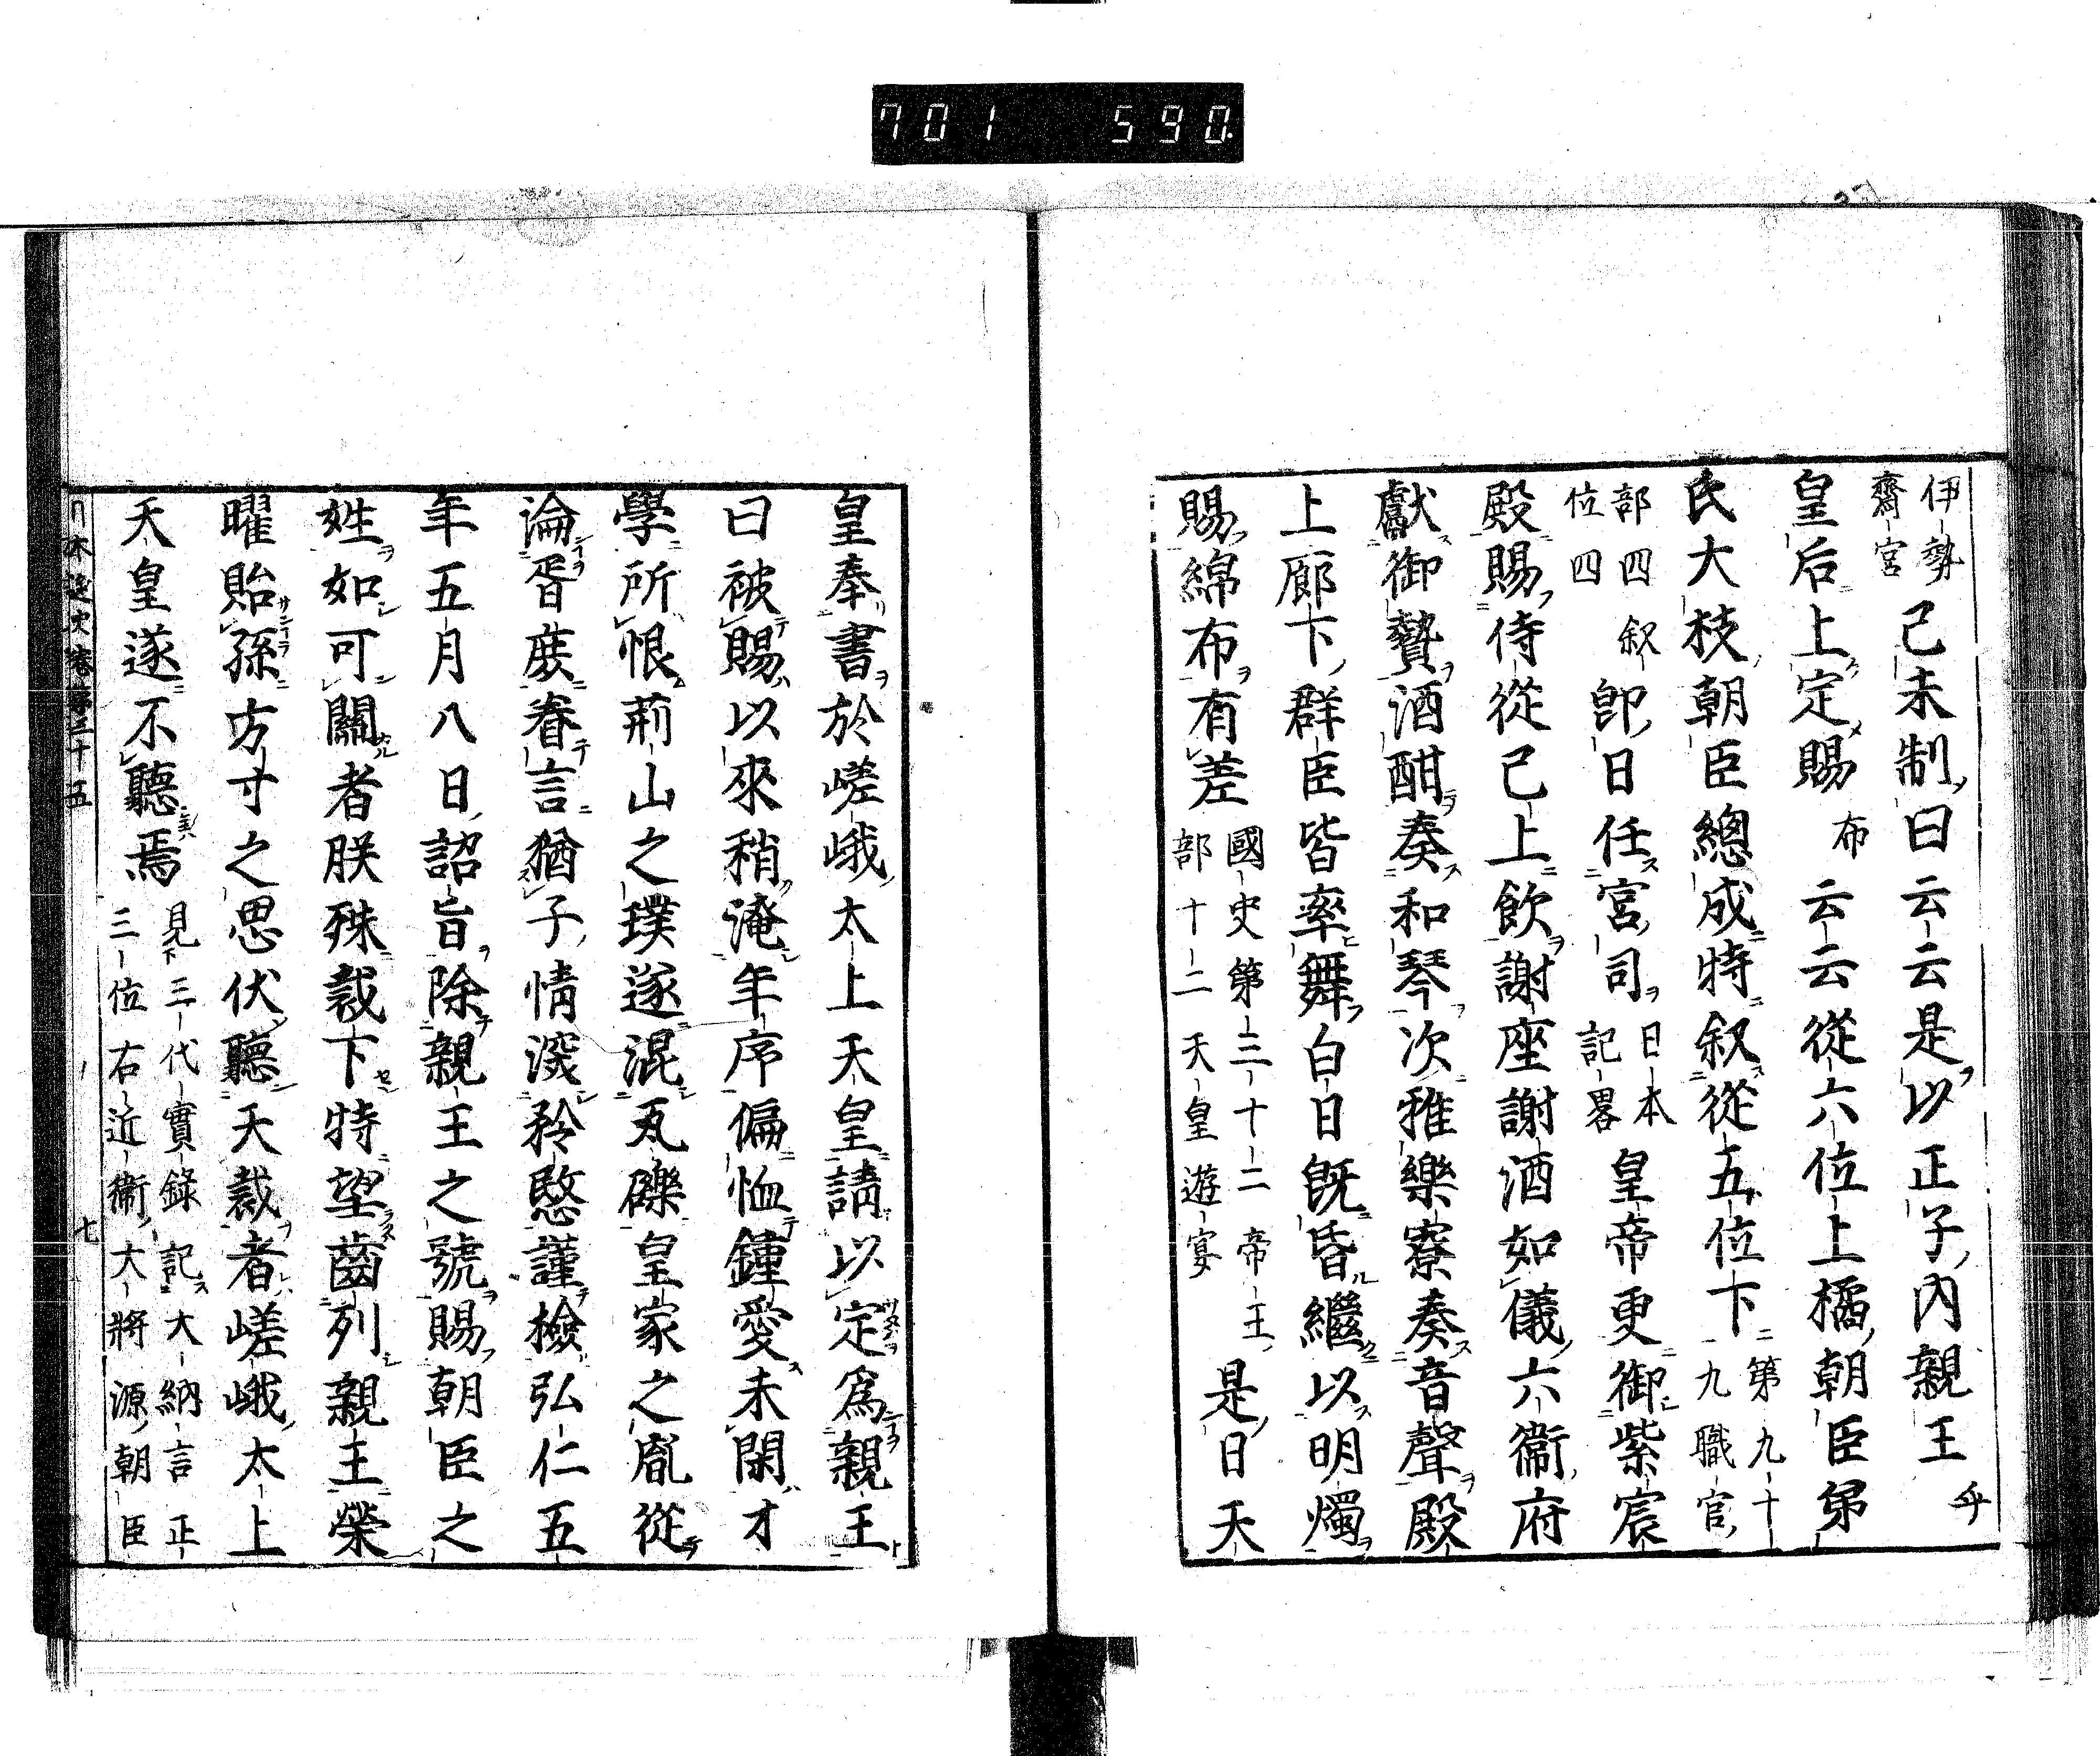 701 590
伊勢齋宮己未制曰云云是以正子内親王乎
皇后上定賜布云云從六位上橘朝臣第
氏大枝朝臣總成特叙從五位下第九十九職官
部四叙位四即日任宮司日本記畧皇帝更御紫宸
殿賜侍從已上飲謝座謝酒如儀六衞府
獻御贄酒酣奏和琴次雅樂寮奏音聲殿
上廊下群臣皆率舞白日既昏繼以明燭
賜綿布有差國史第三十二帝王部十二天皇遊宴是日天
皇奉書於嵯峨太上天皇請以定爲親王
曰被賜以來稍淹年序偏恤鍾愛未閑才
學所恨荊山之璞遂混瓦礫皇家之胤從
淪胥庶眷言猶子情深矜愍謹檢弘仁五
年五月八日詔旨除親王之號賜朝臣之
姓如可關者朕殊裁下特望齒列親王榮
曜貽孫方寸之思伏聽天裁者嵯峨太上
天皇遂不聽焉見三代實錄記大納言正三位右近衞大將源朝臣
日本逸史卷第三十五 七